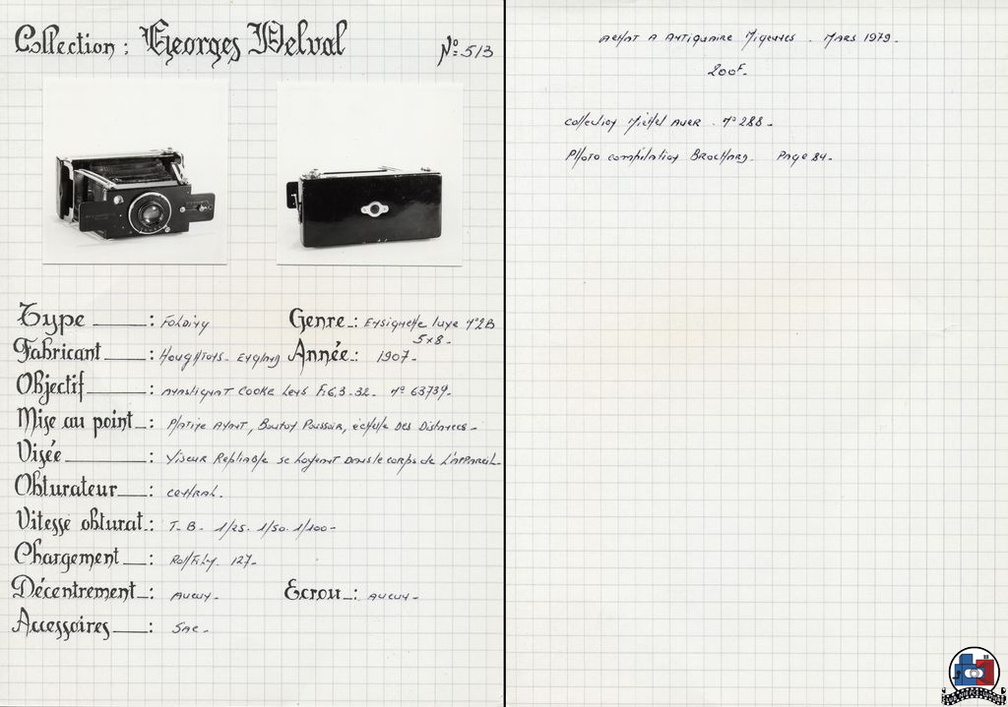 Collection : Georges Delval N° 513
Type : Folding Genre : Ensignette luxe N°2B
5x8.
Fabricant : Houghtons - England Année : 1907.
Objectif : Anastigmat Cooke Lens F:6,3-32. n° 63739.
Mise au point : Platine Avant, Bouton Poussoir, échelle Des Distances.
Visée : Viseur Repliable se logeant dans le corps de L'appareil.
Obturateur : central.
Vitesse obturat. : T. B. 1/25. 1/50. 1/100.
Chargement : Roll Film. 127.
Décentrement : Aucun. Ecrou : Aucun.
Accessoires : Sac.
Achat A Antiquaire . Mars 1979.
200F.
Collection Michel Auer . N° 288.
Photo compilation Brochard. Page 84.